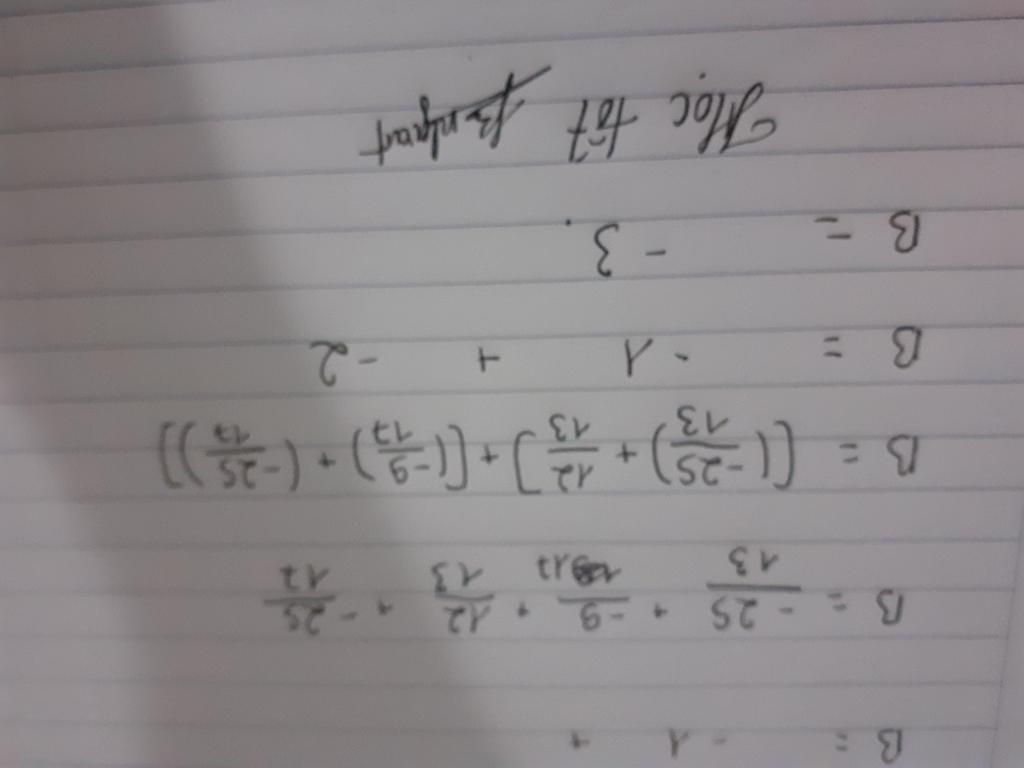 B = - 1 +
B = -25/13 + -9/17 + 12/13 + -25/17
B = [(-25/13) + 12/13] + [(-9/17) + (-25/17)]
B = - 1 + - 2
B = - 3.
Học tốt